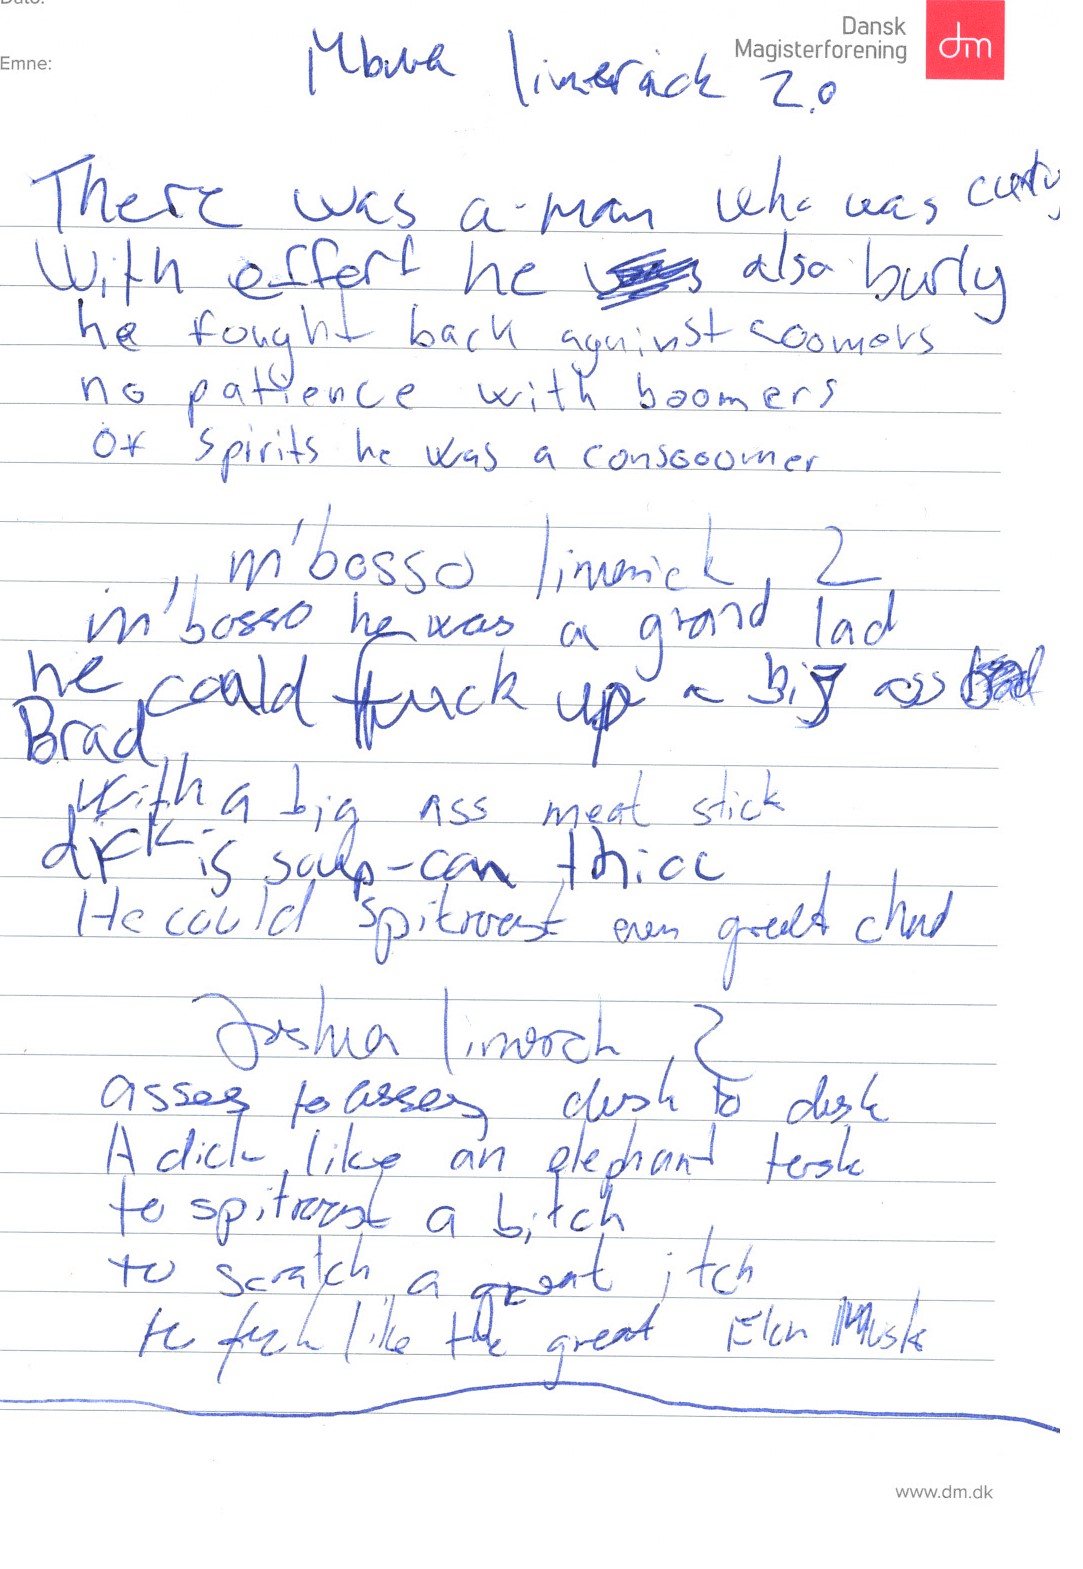 Dato:
Dansk
Magisterforening
dm
Emne:
limerick 2.0
There was a man who was curly
With effort he also burly
he fought back against coomers
no patience with boomers
of spirits he was a consooomer
m'bosso limerick, 2
m'bosso he was a grand lad
he could fuck up a big ass
Brad
with a big ass meat stick
dick is soup-can thicc
He could spitroast even great chad
Joshua limerick, 2
asses to asses, dusk to dusk
A dick like an elephant tusk
to spitroast a bitch
to scratch a great itch
to fuck like the great Elon Musk
www.dm.dk